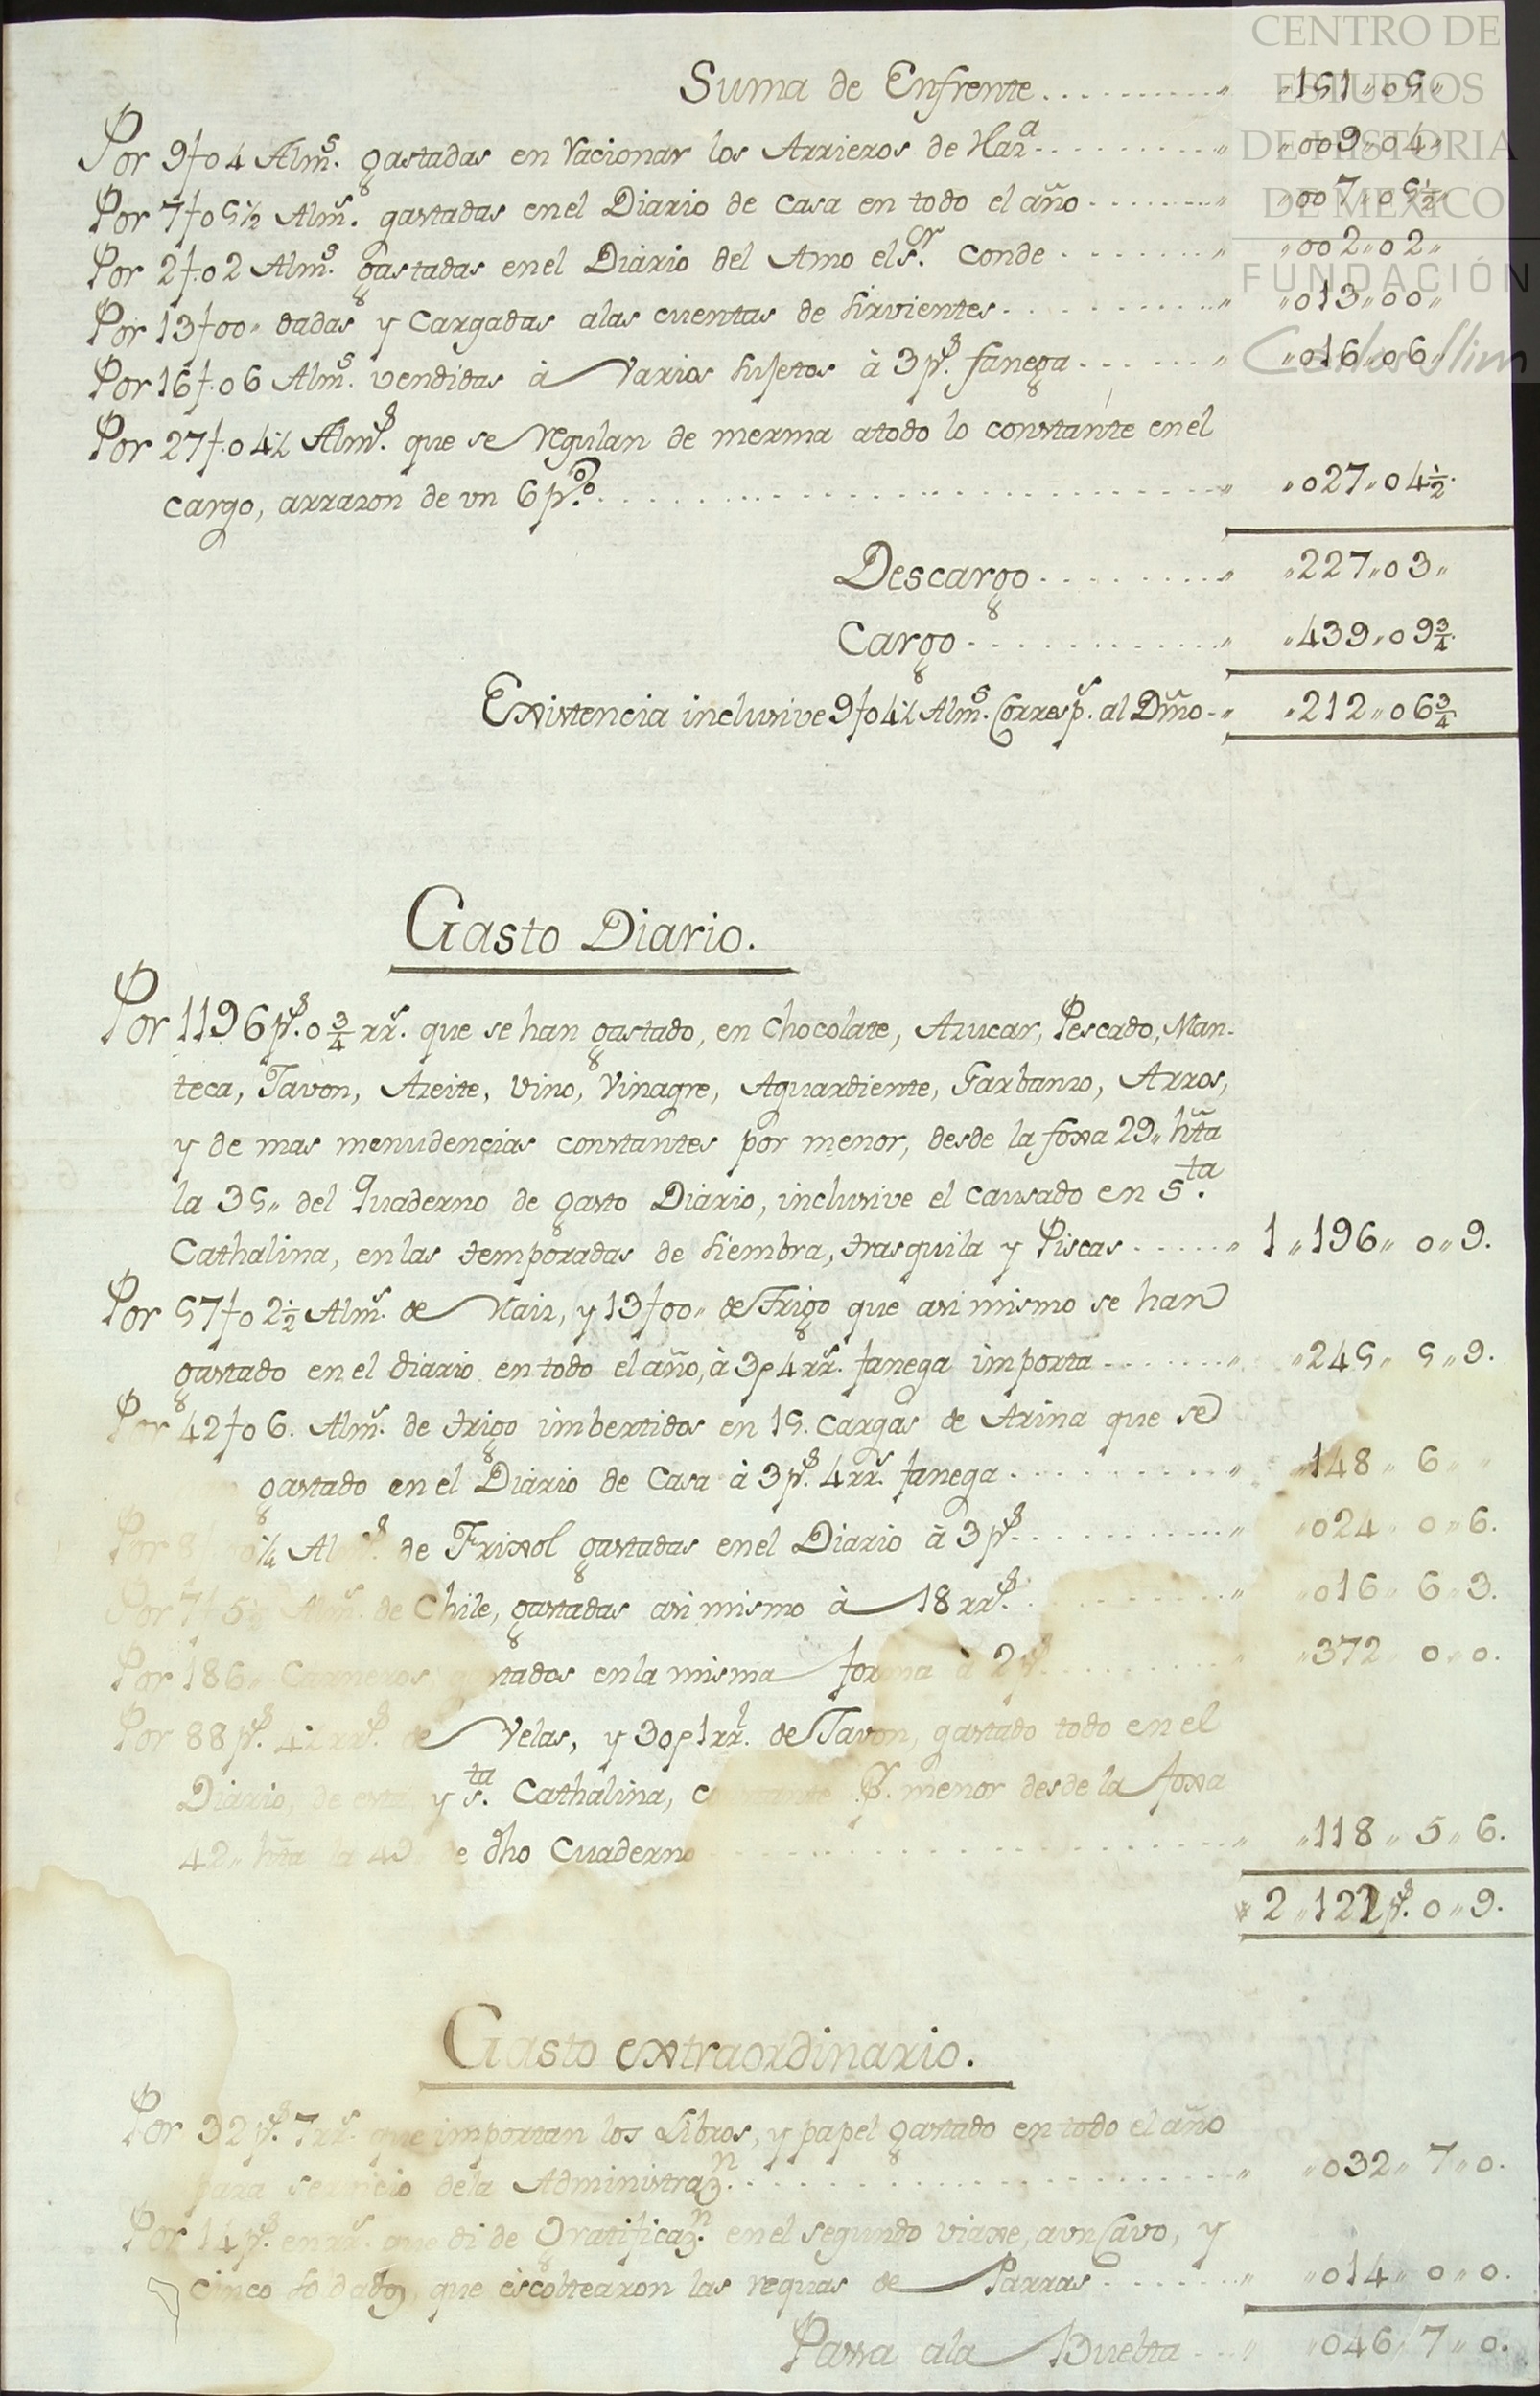 CENTRO DE
ESTUDIOS
DE HISTORIA
DE MÉXICO
FUNDACIÓN
Carlos Slim
Suma de Enfrente.......... „ „151„05„
Por 9f04 Almˢ. gastadas en racionar los Arrieros de Hazᵃ......... „ „009„04„
Por 7f05½ Almˢ. gastadas enel Diario de casa en todo el año....... „ „007„05½„
Por 2f.02 Almˢ. gastadas enel Diario del Amo el Sᵒʳ. Conde........ „ „002„02„
Por 13f00„ dadas y Cargadas alas cuentas de Sirvientes.......... „ „013„00„
Por 16f.06 Almˢ. vendidas à Varios Sujetos à 3pˢ. fanega...... „ „016„06„
Por 27f.04½ Almˢ. que se regulan de merma atodo lo constante enel
cargo, arrazon de un 6 p%........................... „ „027„04½.
Descargo......... „ „227„03„
Cargo............ „ „439„09¾.
Existencia inclusive 9f04½ Almˢ. Corresp. al Dmo.. „ „212„06¾
Gasto Diario.
Por 1196pˢ.0¾rrˢ. que se han gastado, en Chocolate, Azucar, Pescado, Man-
teca, Javon, Azeite, Vino, Vinagre, Aguardiente, Garbanzo, Arros,
y de mas menudencias constantes por menor, desde la foxa 29„ hta
la 35„ del Quaderno de gasto Diario, inclusive el causado en Sᵗᵃ.
Cathalina, en las temporadas de Siembra, trasquila y Piscas..... „ 1„196„ 0„9.
Por 57f02½ Almˢ. de Maiz, y 13f00„ de Trigo que asi mismo se han
gastado en el diario en todo el año, à 3p4rrˢ. fanega importa....... „ „245„ 5„9.
Por 42f06. Almˢ. de trigo imbertidos en 15. Cargas de Arina que se
gastado en el Diario de Casa à 3pˢ.4rrˢ. fanega.......... „ „148„ 6„ „
Por 8 0¼ Almˢ. de Frixol gastadas enel Diario à 3pˢ........... „ „024„ 0„6.
Por 7f5½ Almˢ. de Chile, gastadas asi mismo à 18rrˢ........... „ „016„ 6„3.
Por 186„ Carneros gastados en la misma forma à 2pˢ......... „ „372„ 0„0.
Por 88pˢ.4½rrˢ. de Velas, y 30p1rrˡ. de Javon, gastado todo en el
Diario, de esta y Sᵗᵃ. Cathalina, constante pʳ. menor desde la foxa
42„ hta la 4 de dho Cuaderno.................... „ „118„ 5„6.
2„122pˢ. 0„9.
Gasto extraordinario.
Por 32pˢ.7rrˢ. que importan los Libros, y papel gastado en todo el año
para servicio dela Administrazⁿ......................... „ „032„ 7„0.
Por 14pˢ. en rrˢ. que di de Gratificazⁿ. en el segundo viaxe, aun Cavo, y
cinco soldados, que escoltearon las requas de Parras....... „ „014„ 0„0.
Passa ala Buelta... „ „046„ 7„0.